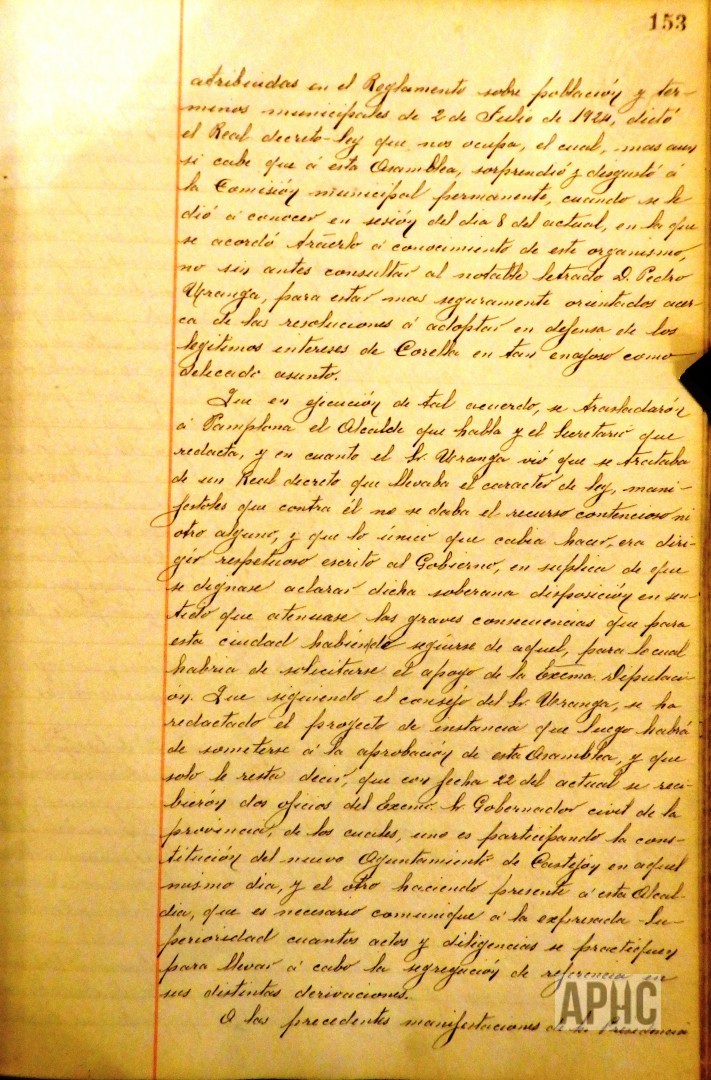 153
atribuidas en el Reglamento sobre población y tér-
minos municipales de 2 de Julio de 1924, dictó
el Real decreto-ley que nos ocupa, el cual, mas aun
si cabe que á esta Asamblea, sorprendió y disgustó á
la Comisión municipal permanente, cuando se le
dió á conocer en sesión del dia 8 del actual, en la que
se acordó traerlo á conocimiento de este organismo,
no sin antes consultar al notable letrado D. Pedro
Uranga, para estar mas seguramente orientados acer-
ca de las resoluciones á adoptar en defensa de los
legitimos intereses de Corella en tan enojoso como
delicado asunto.
Que en ejecución de tal acuerdo, se trasladarón
á Pamplona el Alcalde que habla y el Secretario que
redacta, y en cuanto el Sr. Uranga vió que se trataba
de un Real decreto que llevaba el caracter de ley, mani-
festoles que contra él no se daba el recurso contencioso ni
otro alguno, y que lo único que cabia hacer, era diri-
gir respetuoso escrito al Gobierno, en súplica de que
se dignase aclarar dicha soberana disposición en sen-
tido que atenuase las graves consecuencias que para
esta ciudad habian de seguirse de aquel, para lo cual
habria de solicitarse el apoyo de la Excma. Diputaci-
on. Que siguiendo el consejo del Sr. Uranga, se ha
redactado el proyecto de instancia que luego habrá
de someterse á la aprobación de esta Asamblea, y que
solo le resta decir, que con fecha 22 del actual se reci-
bierón dos oficios del Excmo. Sr. Gobernador civil de la
provincia, de los cuales, uno es participando la cons-
titución del nuevo Ayuntamiento de Castejón en aquel
mismo dia, y el otro haciendo presente á esta Alcal-
dia, que es necesario comunique á la expresada Su-
perioridad cuantos actos y diligencias se practiquen
para llevar á cabo la segregación de referencia en
sus distintas derivaciones.
A las precedentes manifestaciones de la Presidencia
APHC